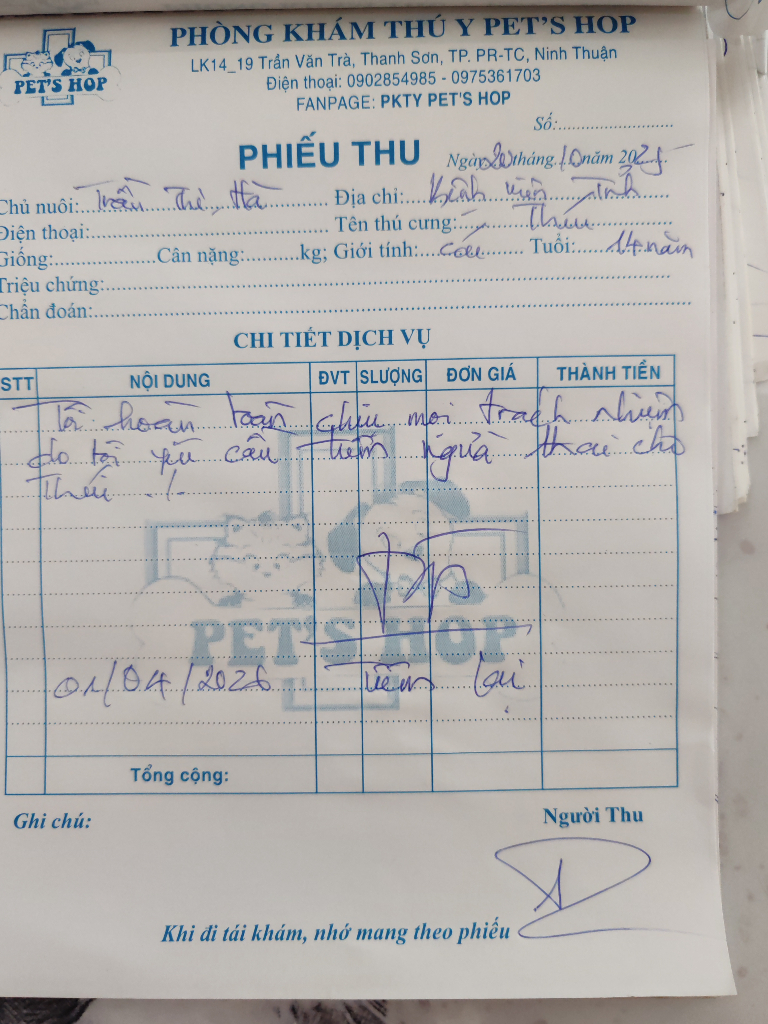 PHÒNG KHÁM THÚ Y PET'S HOP
LK14_19 Trần Văn Trà, Thanh Sơn, TP. PR-TC, Ninh Thuận
Điện thoại: 0902854985 - 0975361703
FANPAGE: PKTY PET'S HOP
PET'S HOP
Số:
PHIẾU THU
Ngày 20 tháng 10 năm 2025
Chủ nuôi: Trần Thị Hà Địa chỉ: Bệnh viện Tỉnh
Điện thoại: Tên thú cưng:
Giống: Cân nặng: kg; Giới tính: cái Tuổi: 14 năm
Triệu chứng:
Chẩn đoán:
CHI TIẾT DỊCH VỤ
STT NỘI DUNG ĐVT SLƯỢNG ĐƠN GIÁ THÀNH TIỀN
Tôi hoàn toàn chịu mọi trách nhiệm
do tôi yêu cầu tiêm ngừa thai cho
./.
PET'S HOP
01/04/2026 Tiêm lại
Tổng cộng:
Ghi chú: Người Thu
Khi đi tái khám, nhớ mang theo phiếu